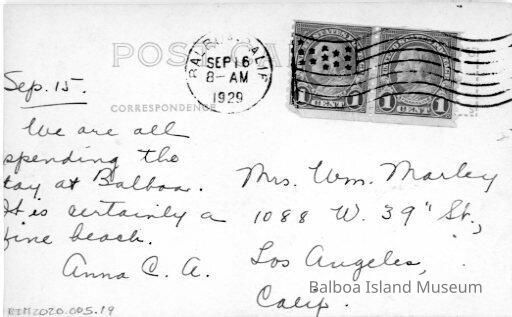 POST CA
BALBOA, CALIF
SEP 16
8-AM
1929
1 CENT 1
1 CENT 1
CORRESPONDENCE
Sep. 15.
We are all
spending the
day at Balboa.
It is certainly a
fine beach.
Anna C. A.
Mrs. Wm. Marley
1088 W. 39" St.,
Los Angeles,
Calif.
Balboa Island Museum
BIM2020.005.19